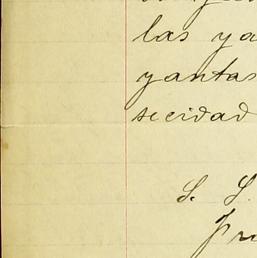 las ya
yantas
secidad
S. S.